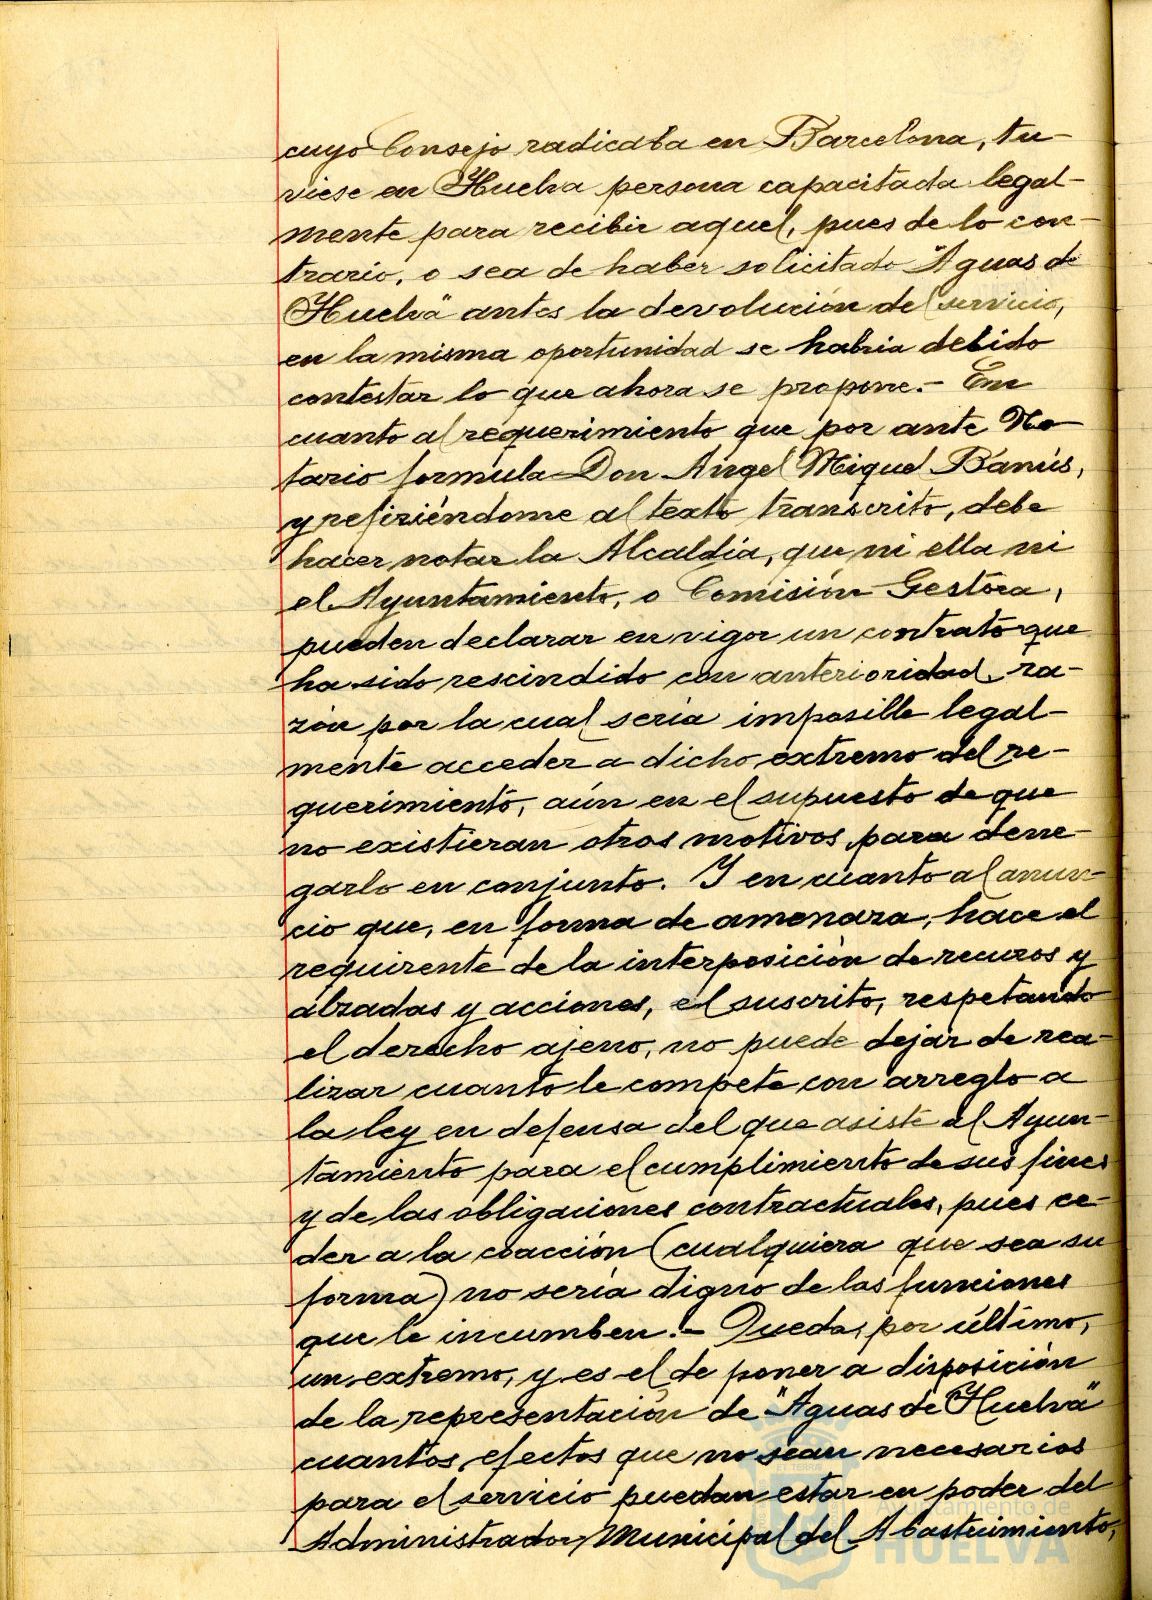 cuyo Consejo radicaba en Barcelona, tu-
viese en Huelva persona capacitada legal-
mente para recibir aquel, pues de lo con-
trario, o sea de haber solicitado "Aguas de
Huelva" antes la devolución del servicio,
en la misma oportunidad se habria debido
contestar lo que ahora se propone.- En
cuanto al requerimiento que por ante No-
tario formula Don Angel Miquel Banús,
y refiriéndome al texto transcrito, debe
hacer notar la Alcaldía, que ni ella ni
el Ayuntamiento, o Comisión Gestora,
pueden declarar en vigor un contrato que
ha sido rescindido con anterioridad, ra-
zón por la cual sería imposible legal-
mente acceder a dicho extremo del re-
querimiento, aún en el supuesto de que
no existieran otros motivos para dene-
garlo en conjunto. Y en cuanto al anun-
cio que, en forma de amenaza, hace el
requirente de la interposición de recursos y
alzadas y acciones, el suscrito, respetando
el derecho ajeno, no puede dejar de rea-
lizar cuanto le compete con arreglo a
la ley en defensa del que asiste al Ayun-
tamiento para el cumplimiento de sus fines
y de las obligaciones contractuales, pues ce-
der a la coacción (cualquiera que sea su
forma) no sería digno de las funciones
que le incumben.- Queda, por último,
un extremo, y es el de poner a disposición
de la representación de "Aguas de Huelva"
cuantos efectos que no sean necesarios
para el servicio puedan estar en poder del
Administrador Municipal del Abastecimiento,
Ayuntamiento de
HUELVA